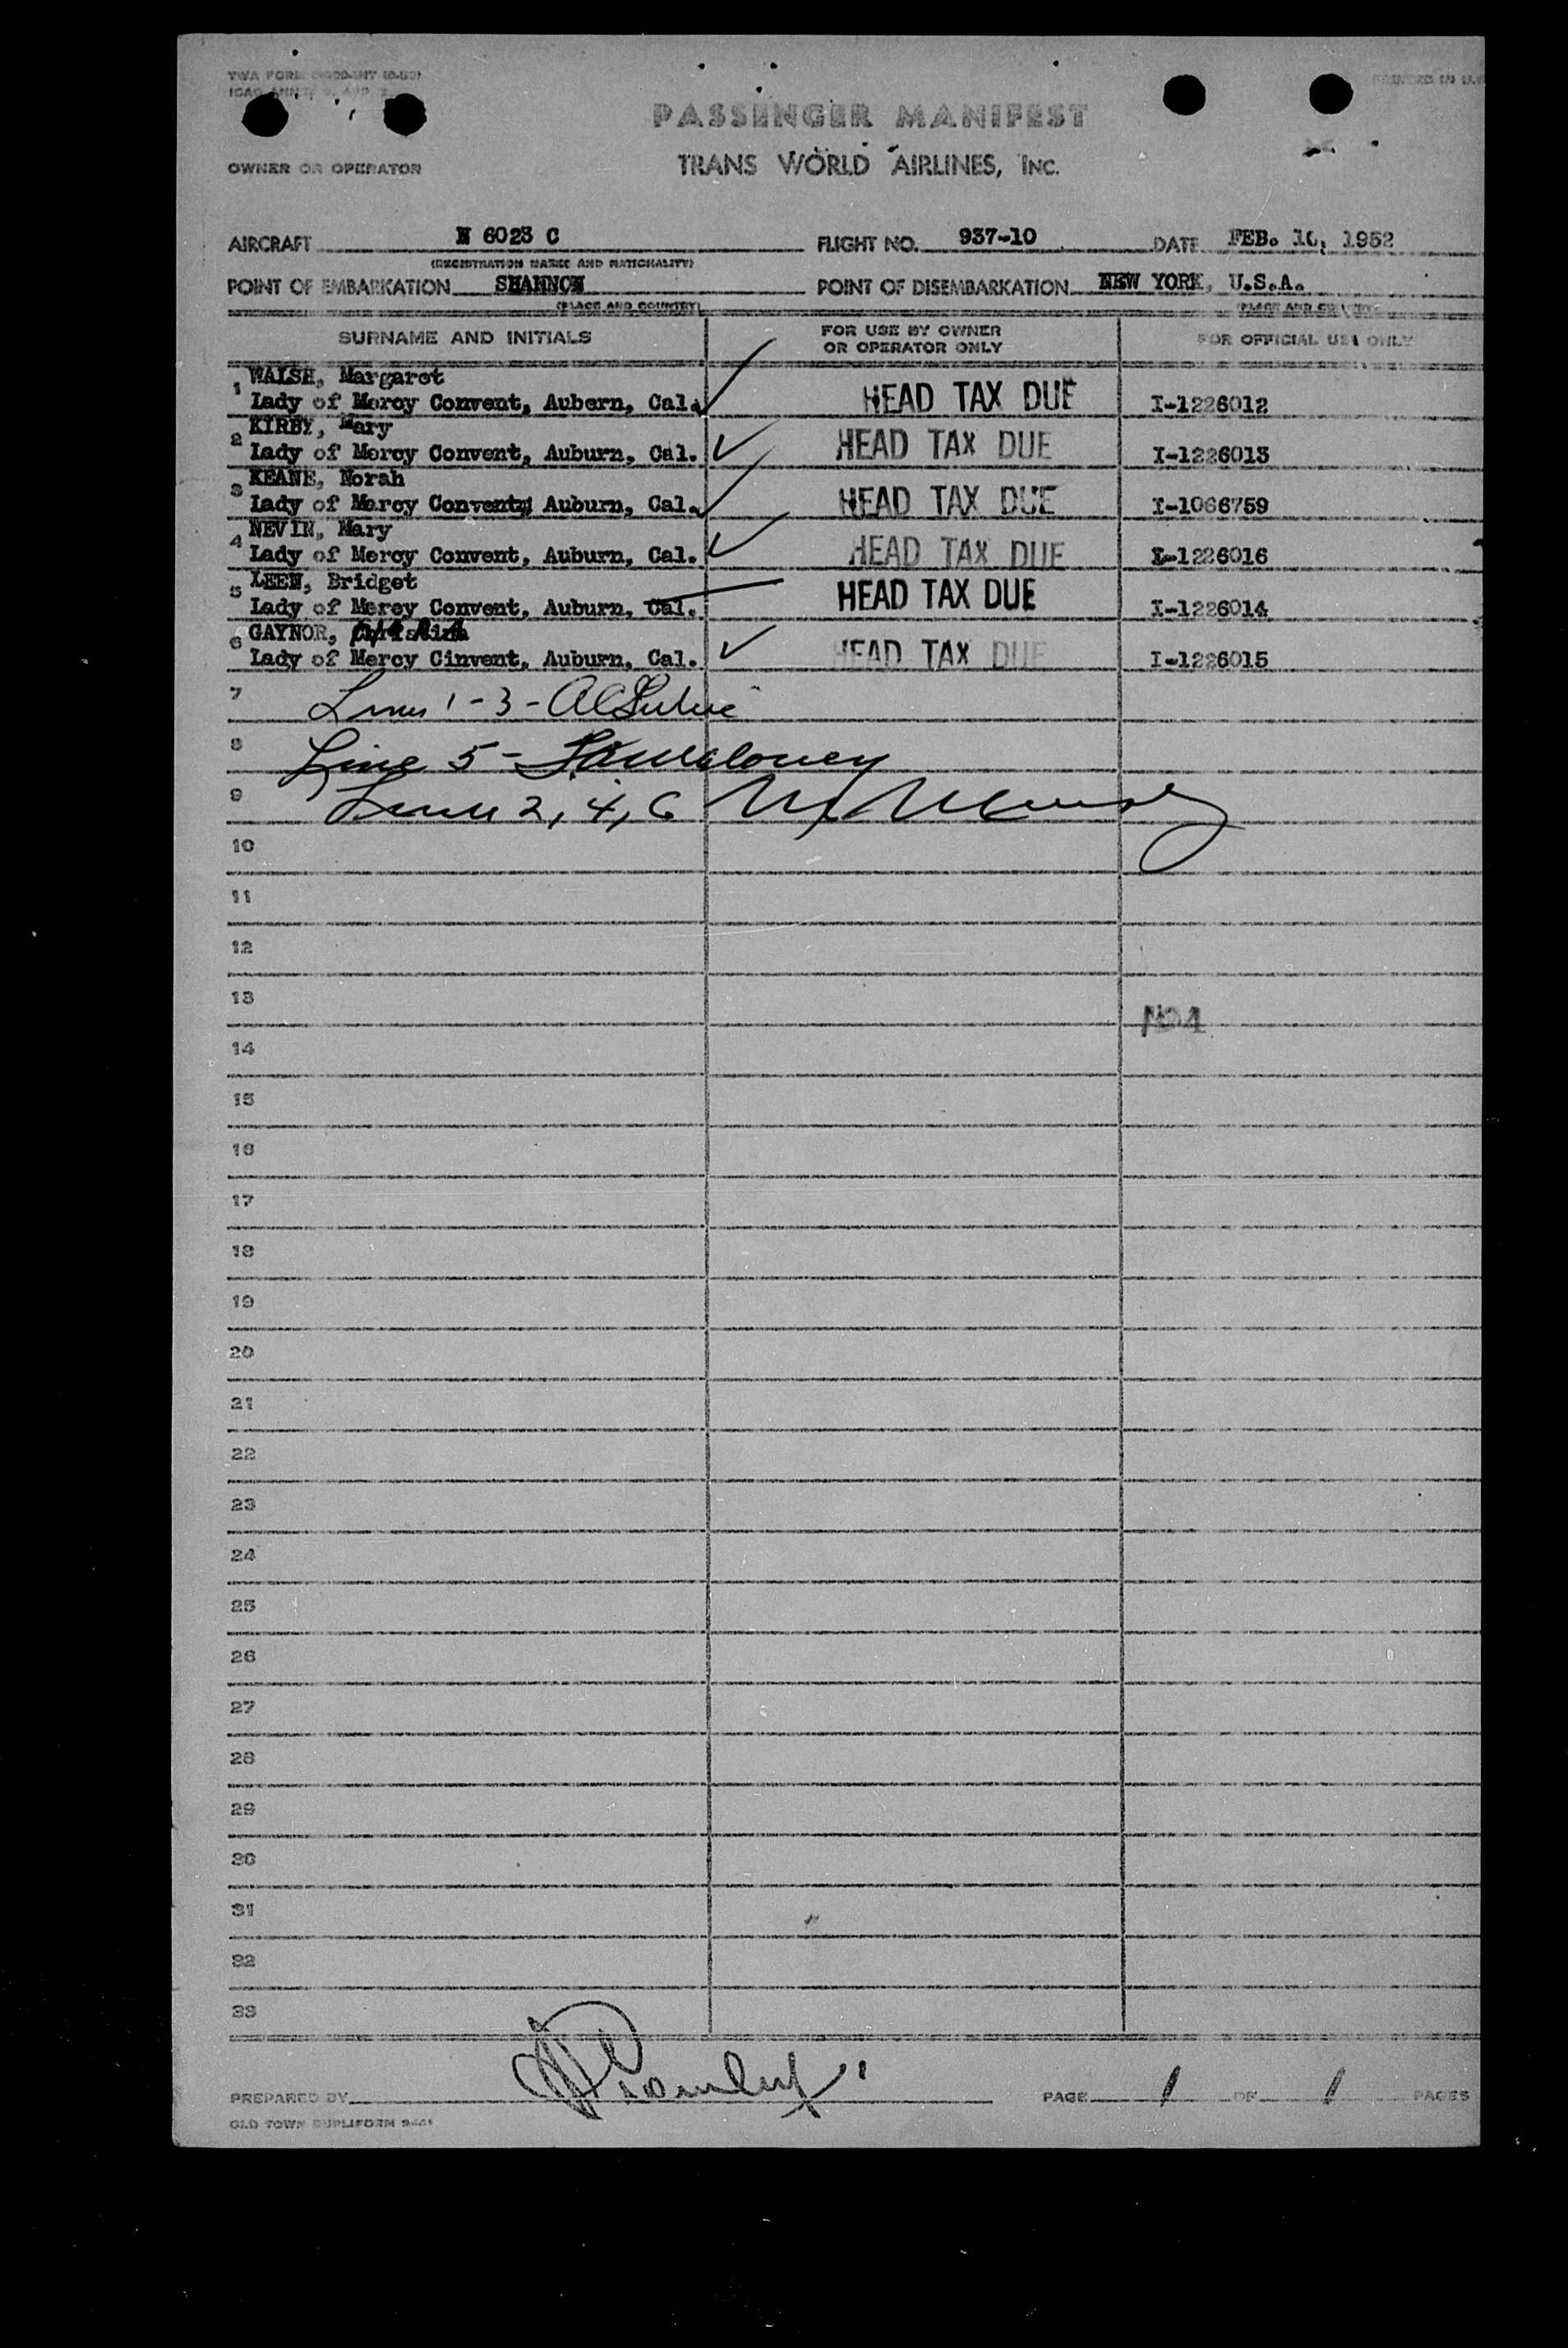 TWA FORM
ICAO ANNEX 9, APP. 2
PRINTED IN U.S.
PASSENGER MANIFEST
OWNER OR OPERATOR TRANS WORLD AIRLINES, INC.
AIRCRAFT N 6023 C FLIGHT NO. 937-10 DATE FEB. 10, 1952
(REGISTRATION MARKS AND NATIONALITY)
POINT OF EMBARKATION SHANNON POINT OF DISEMBARKATION NEW YORK, U.S.A.
(PLACE AND COUNTRY) (PLACE AND COUNTRY)
SURNAME AND INITIALS FOR USE BY OWNER OR OPERATOR ONLY FOR OFFICIAL USE ONLY
1 WALSH, Margaret
Lady of Mercy Convent, Aubern, Cal. HEAD TAX DUE I-1226012
2 KIRBY, Mary
Lady of Mercy Convent, Auburn, Cal. HEAD TAX DUE I-1226013
3 KEANE, Norah
Lady of Mercy Convent, Auburn, Cal. HEAD TAX DUE I-1066759
4 NEVIN, Mary
Lady of Mercy Convent, Auburn, Cal. HEAD TAX DUE I-1226016
5 LEEN, Bridget
Lady of Mercy Convent, Auburn, Cal. HEAD TAX DUE I-1226014
6 GAYNOR, Christina
Lady of Mercy Cinvent, Auburn, Cal. HEAD TAX DUE I-1226015
7 Lines 1-3-
8 Line 5-
9 Lines 2, 4, 6
10
11
12
13
14
15
16
17
18
19
20
21
22
23
24
25
26
27
28
29
30
31
32
33
PREPARED BY PAGE 1 OF 1 PAGES
OLD TOWN DUPLIFORM